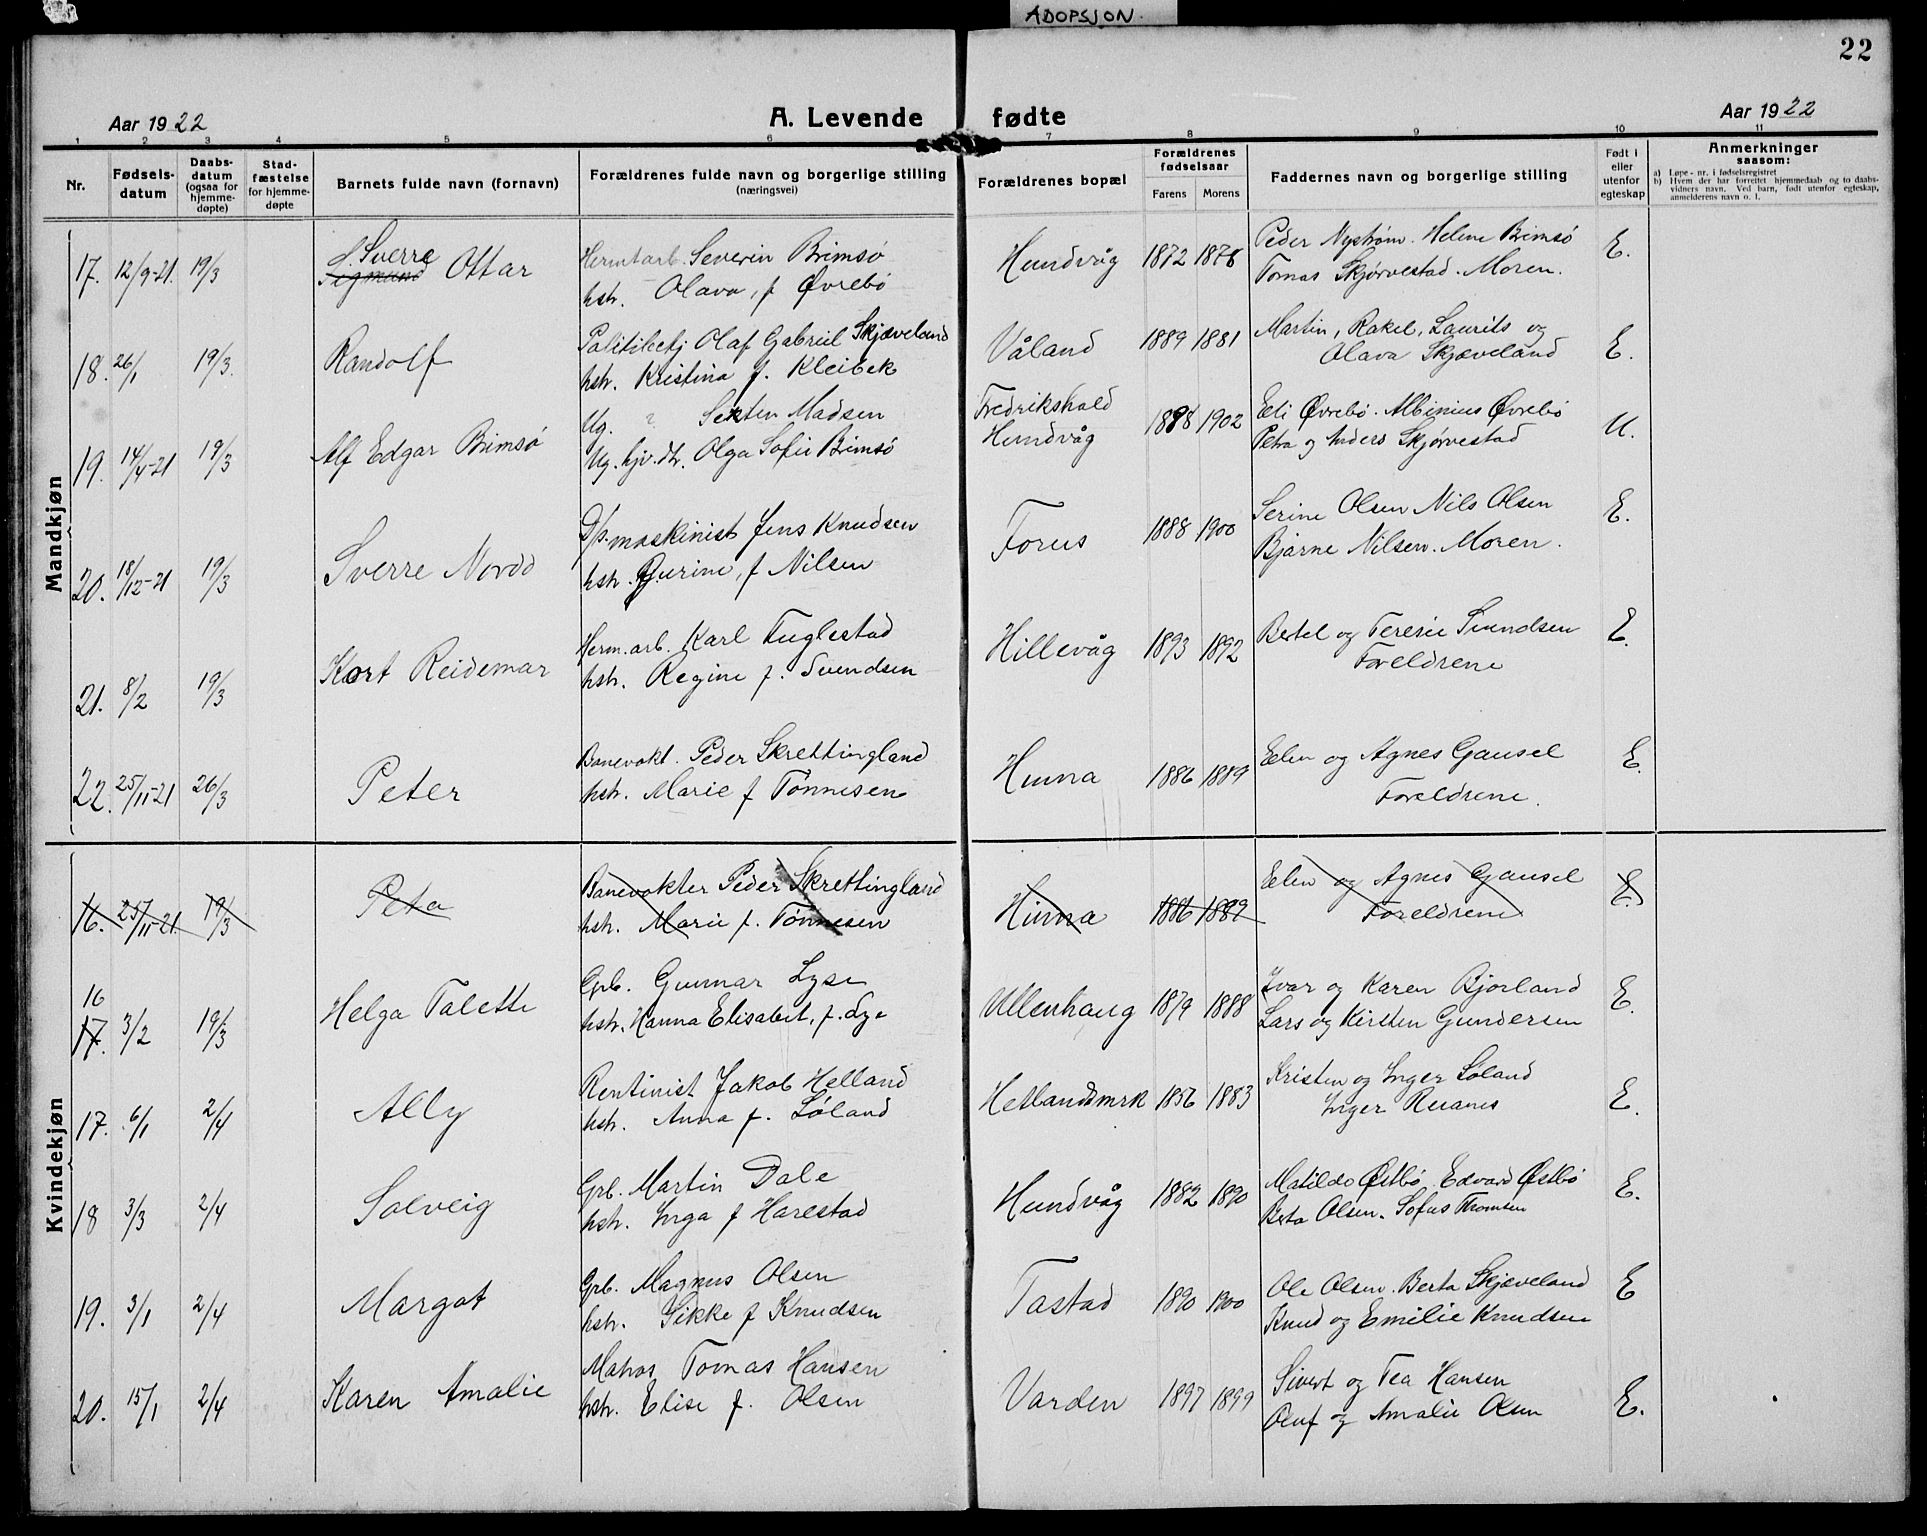 ADOPSJON.
22
Aar 1922 A. Levende fødte Aar 1922
1 2 3 4 5 6 7 8 9 10 11
Nr. Fødsels-datum Daabs-datum (ogsaa for hjemme-døpte) Stad-fæstelse for hjemme-døpte Barnets fulde navn (fornavn) Forældrenes fulde navn og borgerlige stilling (næringsvei) Forældrenes bopæl Forældrenes fødselsaar Farens Morens Faddernes navn og borgerlige stilling Født i eller utenfor egteskap Anmerkninger saasom:
a) Løpe-nr. i fødselsregistret
b) Hvem der har forrettet hjemmedaab og to daabs-
vidners navn. Ved barn, født utenfor egteskap,
anmelderens navn o. l.
Mandkjøn
Sverre Hermtarb. Severin Brimsø Peder Nystrøm. Helene Brimsø
17. 12/9-21. 19/3 Sigmund Ottar hstr. Olava, f Øvrebø Hundvåg 1872 1878 Tomas Skjørvestad. Moren. E.
Politibetj Olaf Gabriel Skjæveland Martin, Rakel, Laurits og
18. 26/1 19/3. Randolf hstr. Kristina f. Kleibek Våland 1889 1881 Olava Skjæveland E.
Ug. ? Sexten Madsen Fredrikshald Eli Øvrebø. Albinius Øvrebø
19. 14/4-21 19/3 Alf Edgar Brimsø Ug. hjv. dtr. Olga Sofie Brimsø Hundvåg 1898 1902 Petra og Anders Skjørvestad U.
D/s. maskinist Jens Knudsen Serine Olsen Nils Olsen
20. 18/12-21 19/3 Sverre Nordo hstr. Gurine, f Nilsen Forus 1888 1900 Bjarne Nilsen. Moren. E.
Herm.arb. Karl Fuglestad Bertel og Teresie Svendsen
21. 8/2 19/3 Kort Reidemar hstr. Regine f. Svendsen Hillevåg 1893 1892 Foreldrene E.
Banevokt. Peder Skrettingland Elen og Agnes Gausel
22. 25/11-21 26/3 Peter hstr. Marie f Tønnesen Hinna 1886 1889 Foreldrene. E.
Kvindekjøn
Banevokter Peder Skrettingland Elen og Agnes Gausel
16. 25/11-21. 19/3 Peta hstr. Marie f. Tønnesen Hinna 1886 1889 Foreldrene E.
16 Grb. Gunnar Lyse Ivar og Karen Bjorland
17. 3/2 19/3 Helga Talette hstr. Hanna Elisabet, f. Lye Ullenhaug 1879 1888 Lars og Kirsten Gundersen E.
Rentinist Jakob Helland Kristen og Inger Løland
17. 6/1 2/4 Ally hstr. Anna f. Løland Hetlandsmrk 1856 1883 Inger E.
Grb. Martin Dale Matilde Østbø Edvard Østbø
18 3/3 2/4 Solveig hstr. Inga f Harestad Hundvåg 1882 1890 Berta Olsen. Sofus Thomsen E.
Grb. Magnus Olsen Ole Olsen. Berta Skjæveland
19. 3/1 2/4 Margot hstr. Sikke f Knudsen Tastad 1890 1900 Knud og Emilie Knudsen E
Matros Tomas Hansen Sivert og Tea Hansen
20. 15/1 2/4 Karen Amalie hstr. Elise f. Olsen Varden 1897 1899 Oluf og Amalie Olsen E.